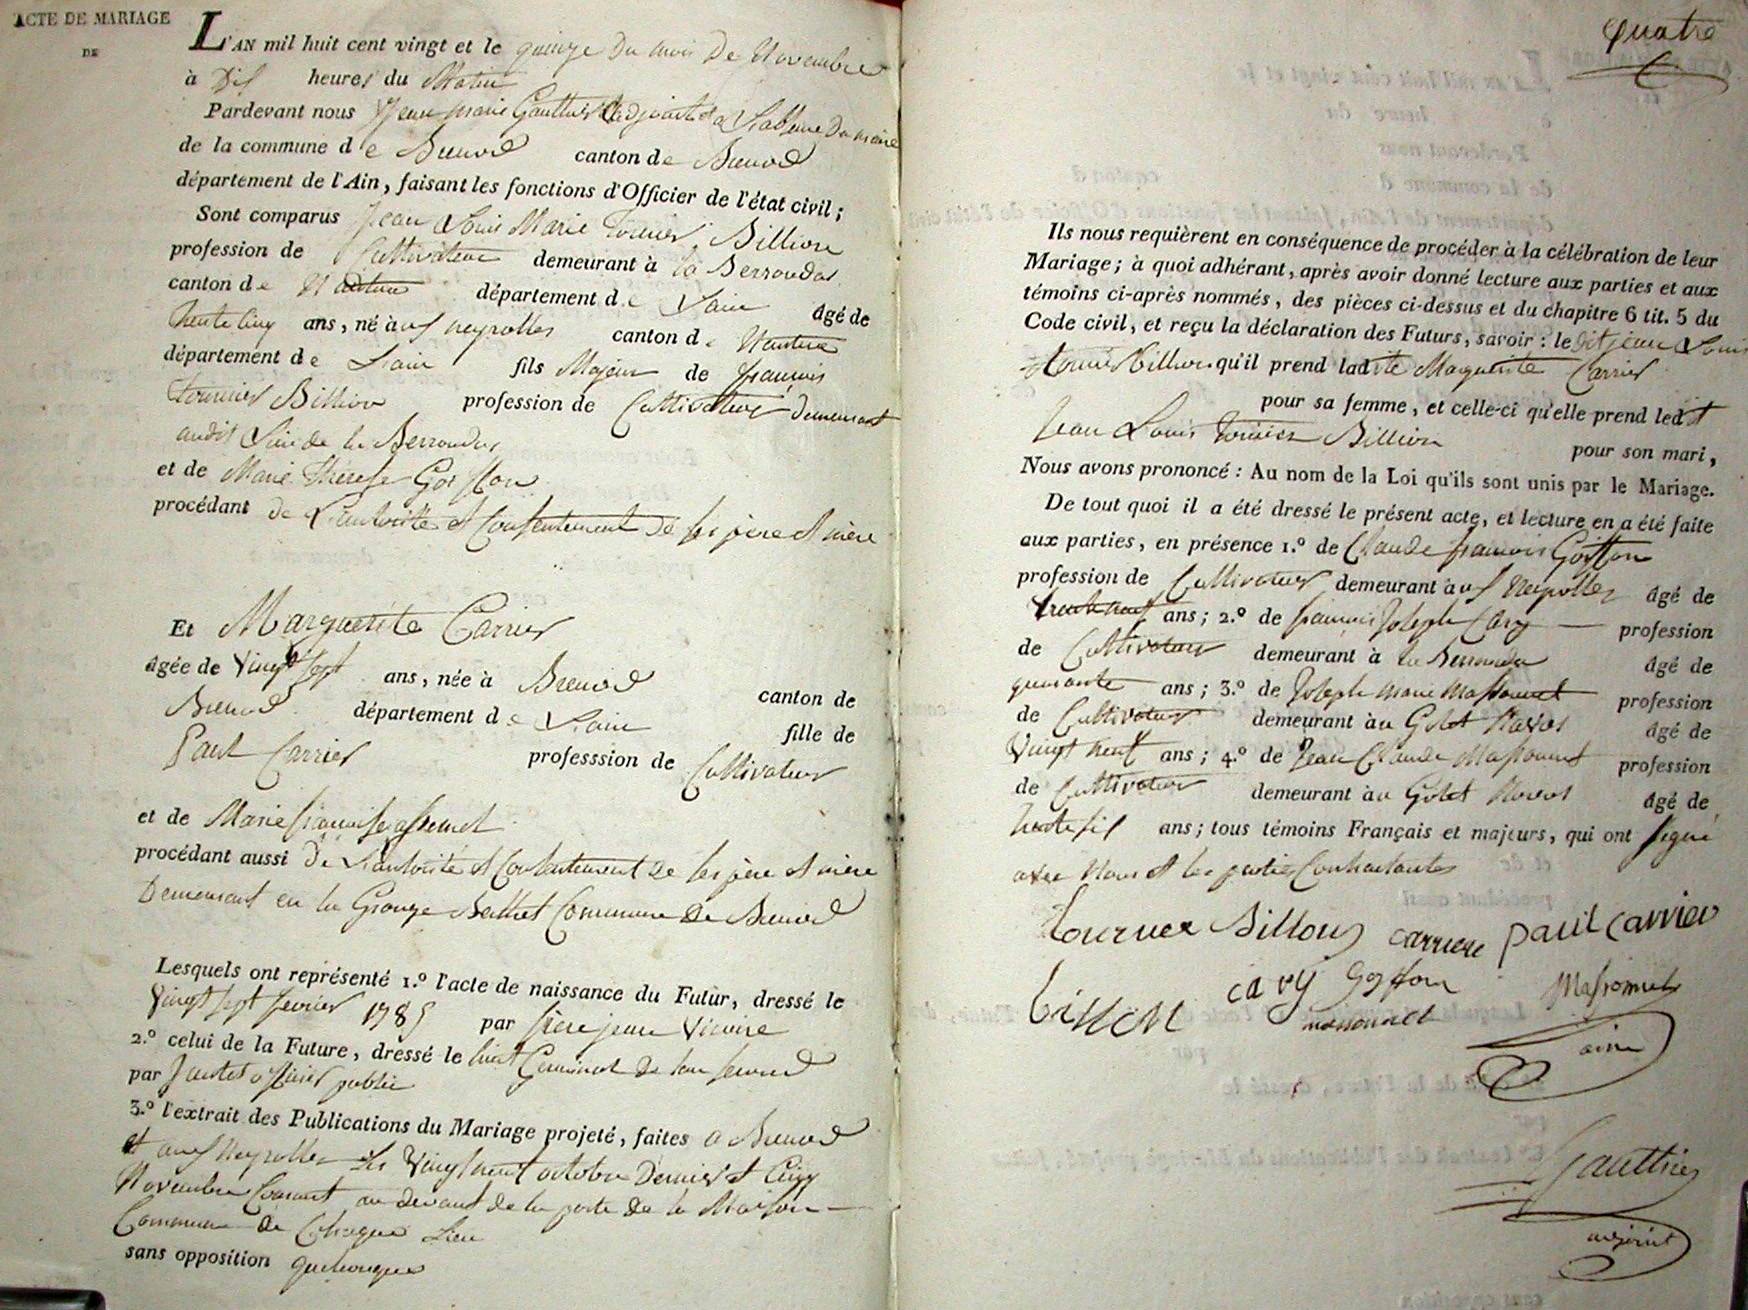 ACTE DE MARIAGE
DE
L'AN mil huit cent vingt et le quinze du mois de Novembre
à Dix heures du Matin
Pardevant nous Jean marie Gauthier adjoint a du maire
de la commune de Brenod canton de Brenod
département de l'Ain, faisant les fonctions d'Officier de l'état civil ;
Sont comparus Jean Louis Marie Tournier Billion
profession de Cultivateur demeurant à la Berrouda
canton de Nantua département de Lain âgé de
trente cinq ans, né aux neyrolles canton de Nantua
département de Lain fils Majeur de françois
tournier Billion profession de Cultivateur demeurant
audit Lieu de la Berrouda
et de Marie Therese Goiffon
procédant de Lautorité et Consentement de ses père et mère
Et Marguerite Carrier
âgée de Vingt sept ans, née à Brenod canton de
Brenod département de Lain fille de
Paul Carrier professsion de Cultivateur
et de Marie françoise
procédant aussi de Lautorité et Consentement de ses père et mère
Demeurant en la Grange Berthet Commune de Brenod
Lesquels ont représenté 1.º l'acte de naissance du Futur, dressé le
Vingt sept fevrier 1785 par jean
2.º celui de la Future, dressé le huit Germinal de lan second
par officier public
3.º l'extrait des Publications du Mariage projeté, faites a Brenod
et aux Neyrolles les Vingt neuf octobre Dernier et Cinq
Novembre Courant au devant de la porte de la Maison
Commune de Chaque Lieu
sans opposition quelconque
quatre
Ils nous requièrent en conséquence de procéder à la célébration de leur
Mariage ; à quoi adhérant, après avoir donné lecture aux parties et aux
témoins ci-après nommés, des pièces ci-dessus et du chapitre 6 tit. 5 du
Code civil, et reçu la déclaration des Futurs, savoir : le dit jean Louis
tournier Billion qu'il prend ladite Marguerite Carrier
pour sa femme, et celle-ci qu'elle prend ledit
Jean Louis tournier Billion pour son mari,
Nous avons prononcé : Au nom de la Loi qu'ils sont unis par le Mariage.
De tout quoi il a été dressé le présent acte, et lecture en a été faite
aux parties, en présence 1.º de Claude francois Goiffon
profession de Cultivateur demeurant aux Neyrolles âgé de
trente neuf ans ; 2.º de francois Joseph Cary profession
de Cultivateur demeurant à la Berrouda âgé de
quarante ans ; 3.º de Joseph marie Massonnet profession
de Cultivateur demeurant au Golet âgé de
Vingt neuf ans ; 4.º de Jean Claude Massonnet profession
de Cultivateur demeurant au Golet âgé de
trente six ans ; tous témoins Français et majeurs, qui ont signé
avec Nous et les parties Contractantes
tournier Billion carriere paul carrier
billion cary Goiffon Massonnet
massonnet ainé
Gauthier
adjoint